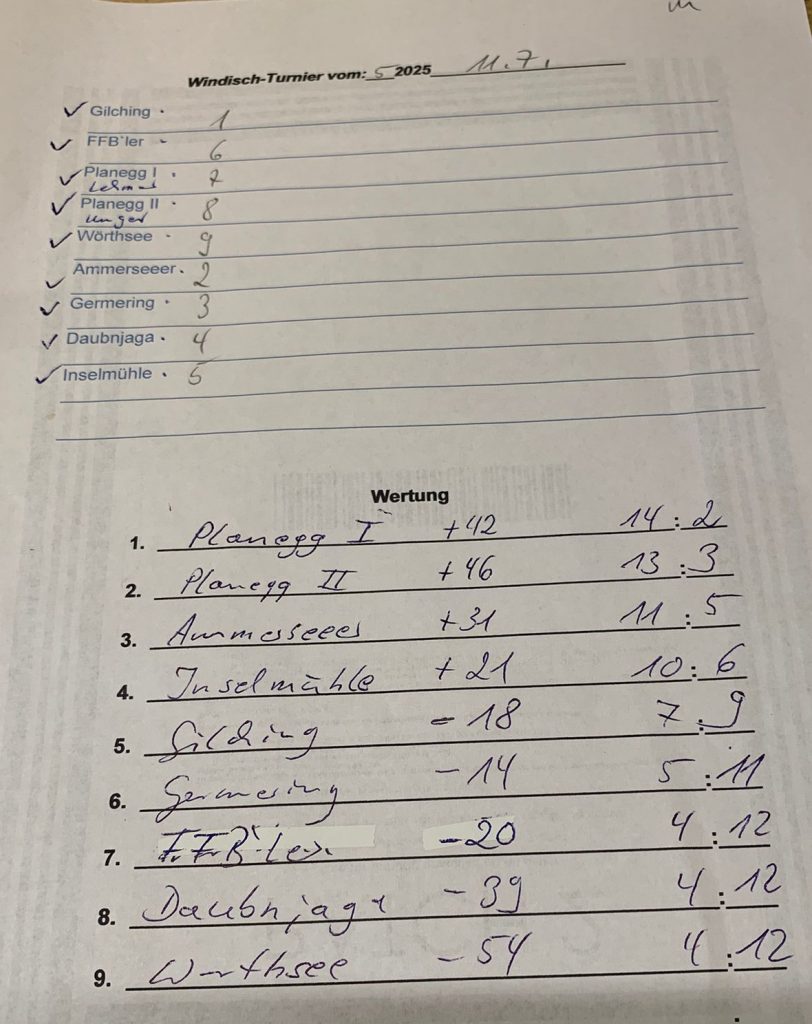 Windisch-Turnier vom: 5 2025 11.7.
✓ Gilching · 1
✓ FFB'ler - 6
✓ Planegg I . 7
✓ Planegg II · 8
Unger
✓ Wörthsee · 9
✓ Ammerseeer. 2
✓ Germering · 3
✓ Daubnjaga · 4
✓ Inselmühle · 5
Wertung
1. Planegg I +42 14 : 2
2. Planegg II +46 13 : 3
3. Ammerseeer +31 11 : 5
4. Inselmühle +21 10 : 6
5. Gilching - 18 7 : 9
6. Germering - 14 5 : 11
7. FFB'ler -20 4 : 12
8. Daubnjaga - 39 4 : 12
9. Wörthsee - 54 4 : 12